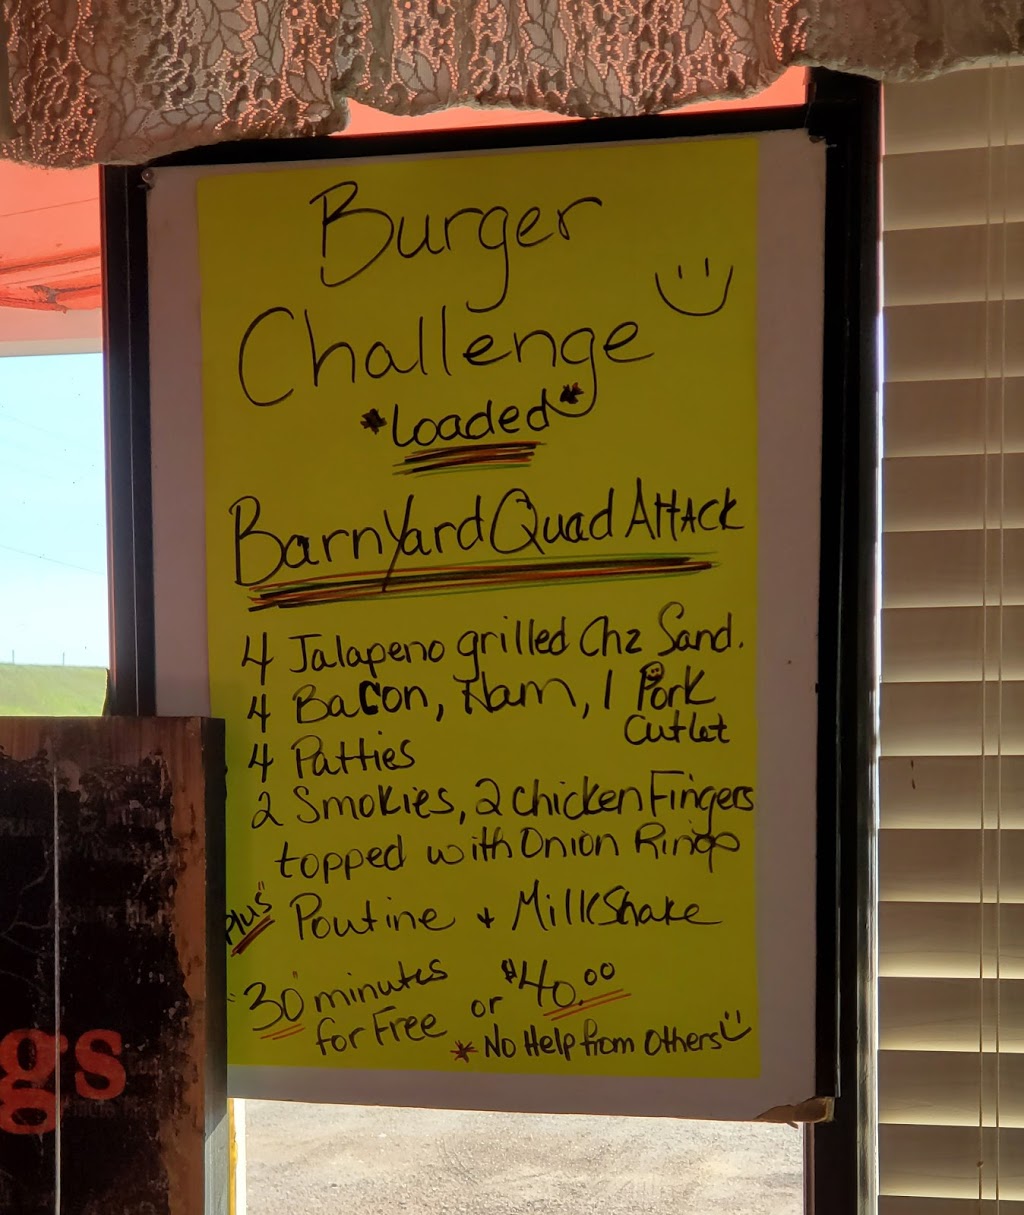 Burger
Challenge
*Loaded*
BarnYard Quad Attack
4 Jalapeno grilled Chz Sand.
4 Bacon, Ham, 1 Pork
Cutlet
4 Patties
2 Smokies, 2 chicken Fingers
topped with Onion Rings
"Plus" Poutine + MilkShake
"30" minutes or $40.00
for Free
* No Help from Others
gs